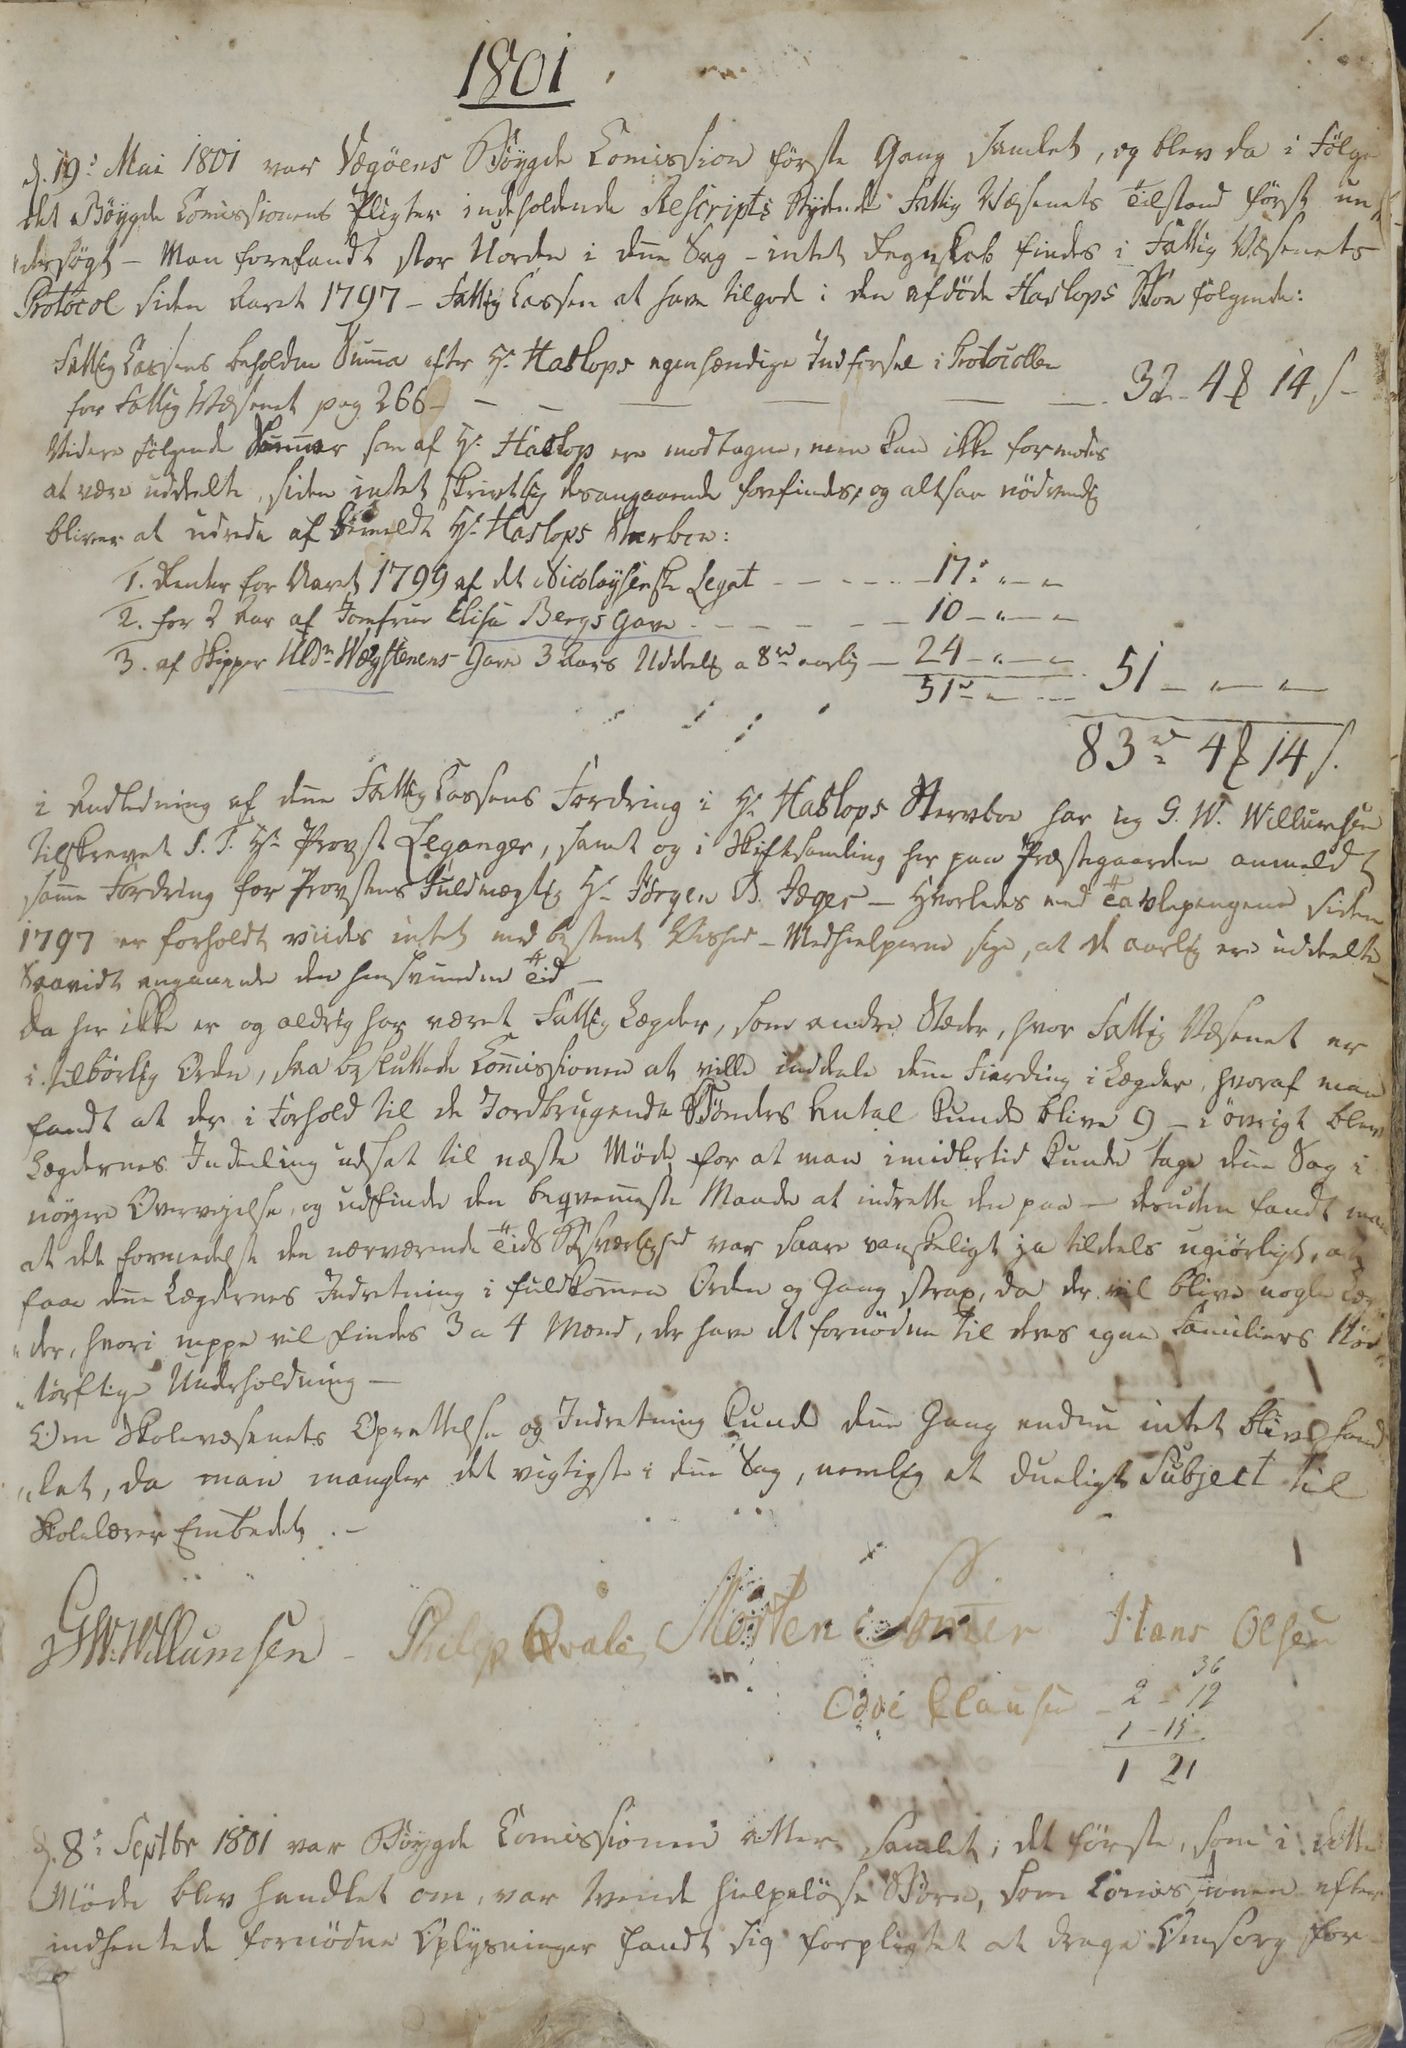 1.
1801
d. 19: Mai 1801 var Vægöens Böygde Comission förste Gang samlet, og blev da i Fölge
det Böygde Comissionens Pligter indeholdende Rescripts Bydende Fattig Væsenets Tilstand först un„
„dersögt - Man forefandt stor Uorden i dne Sag - intet Regnskab findes i Fattig Væsenets
Protocol siden Aaret 1797 - Fattig Cassen at have tilgode i den afdöde Haslops Boe fölgende:
Fattig Cassens beholdne Summa efter Hr Haslops egenhændige Indförsel i Protocollen
for Fattig Væsenet pag 266 - - - 32 - 4 ₰ 14 s -
Videre fölgende Summer som af Hr Haslop ere modtagne, men kan ikke formodes
at være uddeelte, siden intet skrivtlig desangaaende forefindes, og altsaa nödvendig
bliver at udrede af bemeldte Hr Haslops Sterboe:
1. Renter for Aaret 1799 af det Nicolaysenske Legat - - - - 17: „ - „
2. for 2 Aar af Jomfrue Elisa Bergs Gave - - - - 10 - „ - „
3. af Skipper Wægstenens Gave 3 Aars Uddeelg a 8 rd aarlig - 24 - „ - „
51 rd „ - 51 - „ - „
83 rd 4 ₰ 14 s.
i Anledning af dne Fattig Cassens Fordring i Hr Haslops Stervboe har jeg G. W. Willumsen
tilskrevet S. T. Hr Provst Leganger, samt og i Skiftsamling her paa Præstegaarden anmeldt
samme Fordring for Provstens Fuldmægtig Hr Jörgen B. Jæger - Hvorledes med Tavlepengene siden
1797 er forholdt viides intet med bestemt Vished - Medhielperne sige, at de aarlig ere uddeelte -
Saavidt angaaende den hensvundne Tid -
Da her ikke er og aldrig har været Fattig Lægder, som andre Stæder, hvor Fattig Væsenet er
i tilbörlig Orden, saa besluttede Comissionen at ville inddele dene Fierding i Lægder, hvoraf man
fandt at der i Forhold til de Jordbrugende Bönders Antal kunde blive 9 - i övrigt blev
Lægdernes Inddeeling udsat til næste Möde, for at man imidlertid kunde tage dne Sag i
nöyere Overvejelse, og udfinde den beqvemmeste Maade at indrette den paa - desuden fandt man
at det formedelst den nærværende Tids Besværlighed var saare vanskeligt ja tildels ugiörligt, at
faae dne Lægdernes Indretning i fuldkommen Orden og Gang strax, da der vil blive nogle Læg„
„der, hvori neppe vil findes 3 a 4 Mænd, der have det fornödne til deres egne Familiers Nöd„
„törftige Underholdning -
Om Skolevæsenets Oprettelse og Indretning kunde dne Gang endnu intet blive hand„
„let, da man mangler det vigtigste i dne Sag, nemlig et dueligt Subject til
Skolelærer Embedet. -
GW. Willumsen - Philip Qvale Morten Hans Olsen
Clausen
36
2 - 12
1 - 15
1 21
d. 8: Septbr 1801 var Böygde Comissionen atter samlet; det förste, som i dette
Möde blev handlet om, var tvende hielpelöse Börn, som Comissionen efter
indhentede fornödne Oplysninger fandt sig forpligtet at drage Omsorg for